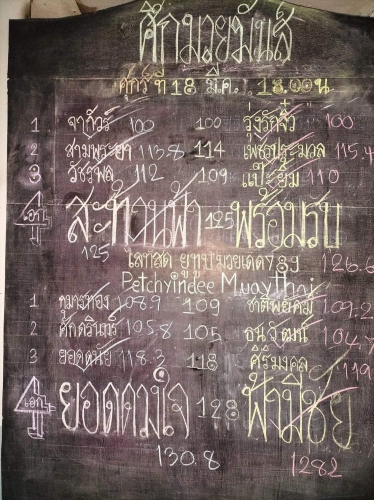 ศึกมวยมันส์
ศุกร์ ที่ 18 มี.ค. 18.00น
1 จากัวร์ 100 100 รุ่งรักจิ๋ว 100
2 สามพระยา 113.8 114 เพชรประมวล 115.4
3 วัชรพล 112 109 แป๊ะยิ้ม 110
เอก สะท้านฟ้า 125 พร้อมรบ
125 126.6
ไลฟ์สด ยูทูป มวยเด็ด789
Petchyindee MuayThai
1 กุมารทอง 108.9 109 ชาติพยัคฆ์ 109.2
2 ศักดรินทร์ 105.8 105 ธนวัฒน์ 104.7
3 ยอดดนัย 118.3 118 ศิริมงคล 119
เอก ยอดดวงใจ 128 ฟ้ามีชัย
130.8 128.2